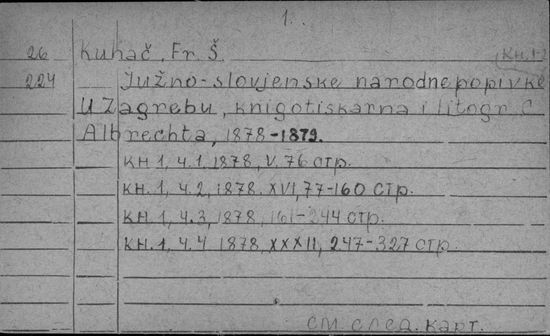 1.
26 Kuhač, Fr. Š. (КН. 1
224 Južno-slovjenske narodne popivke
U Zagrebu, knigotiskarna i litogr C
Albrechta, 1878-1879.
КН. 1, Ч. 1, 1878, V. 76 СТР.
КН. 1, Ч. 2, 1878. XVI, 77-160 СТР.
КН. 1, Ч. 3, 1878, 161-244 СТР.
КН. 1, Ч. 4 1878, XXXII, 247-327 СТР.
СМ след. карт.